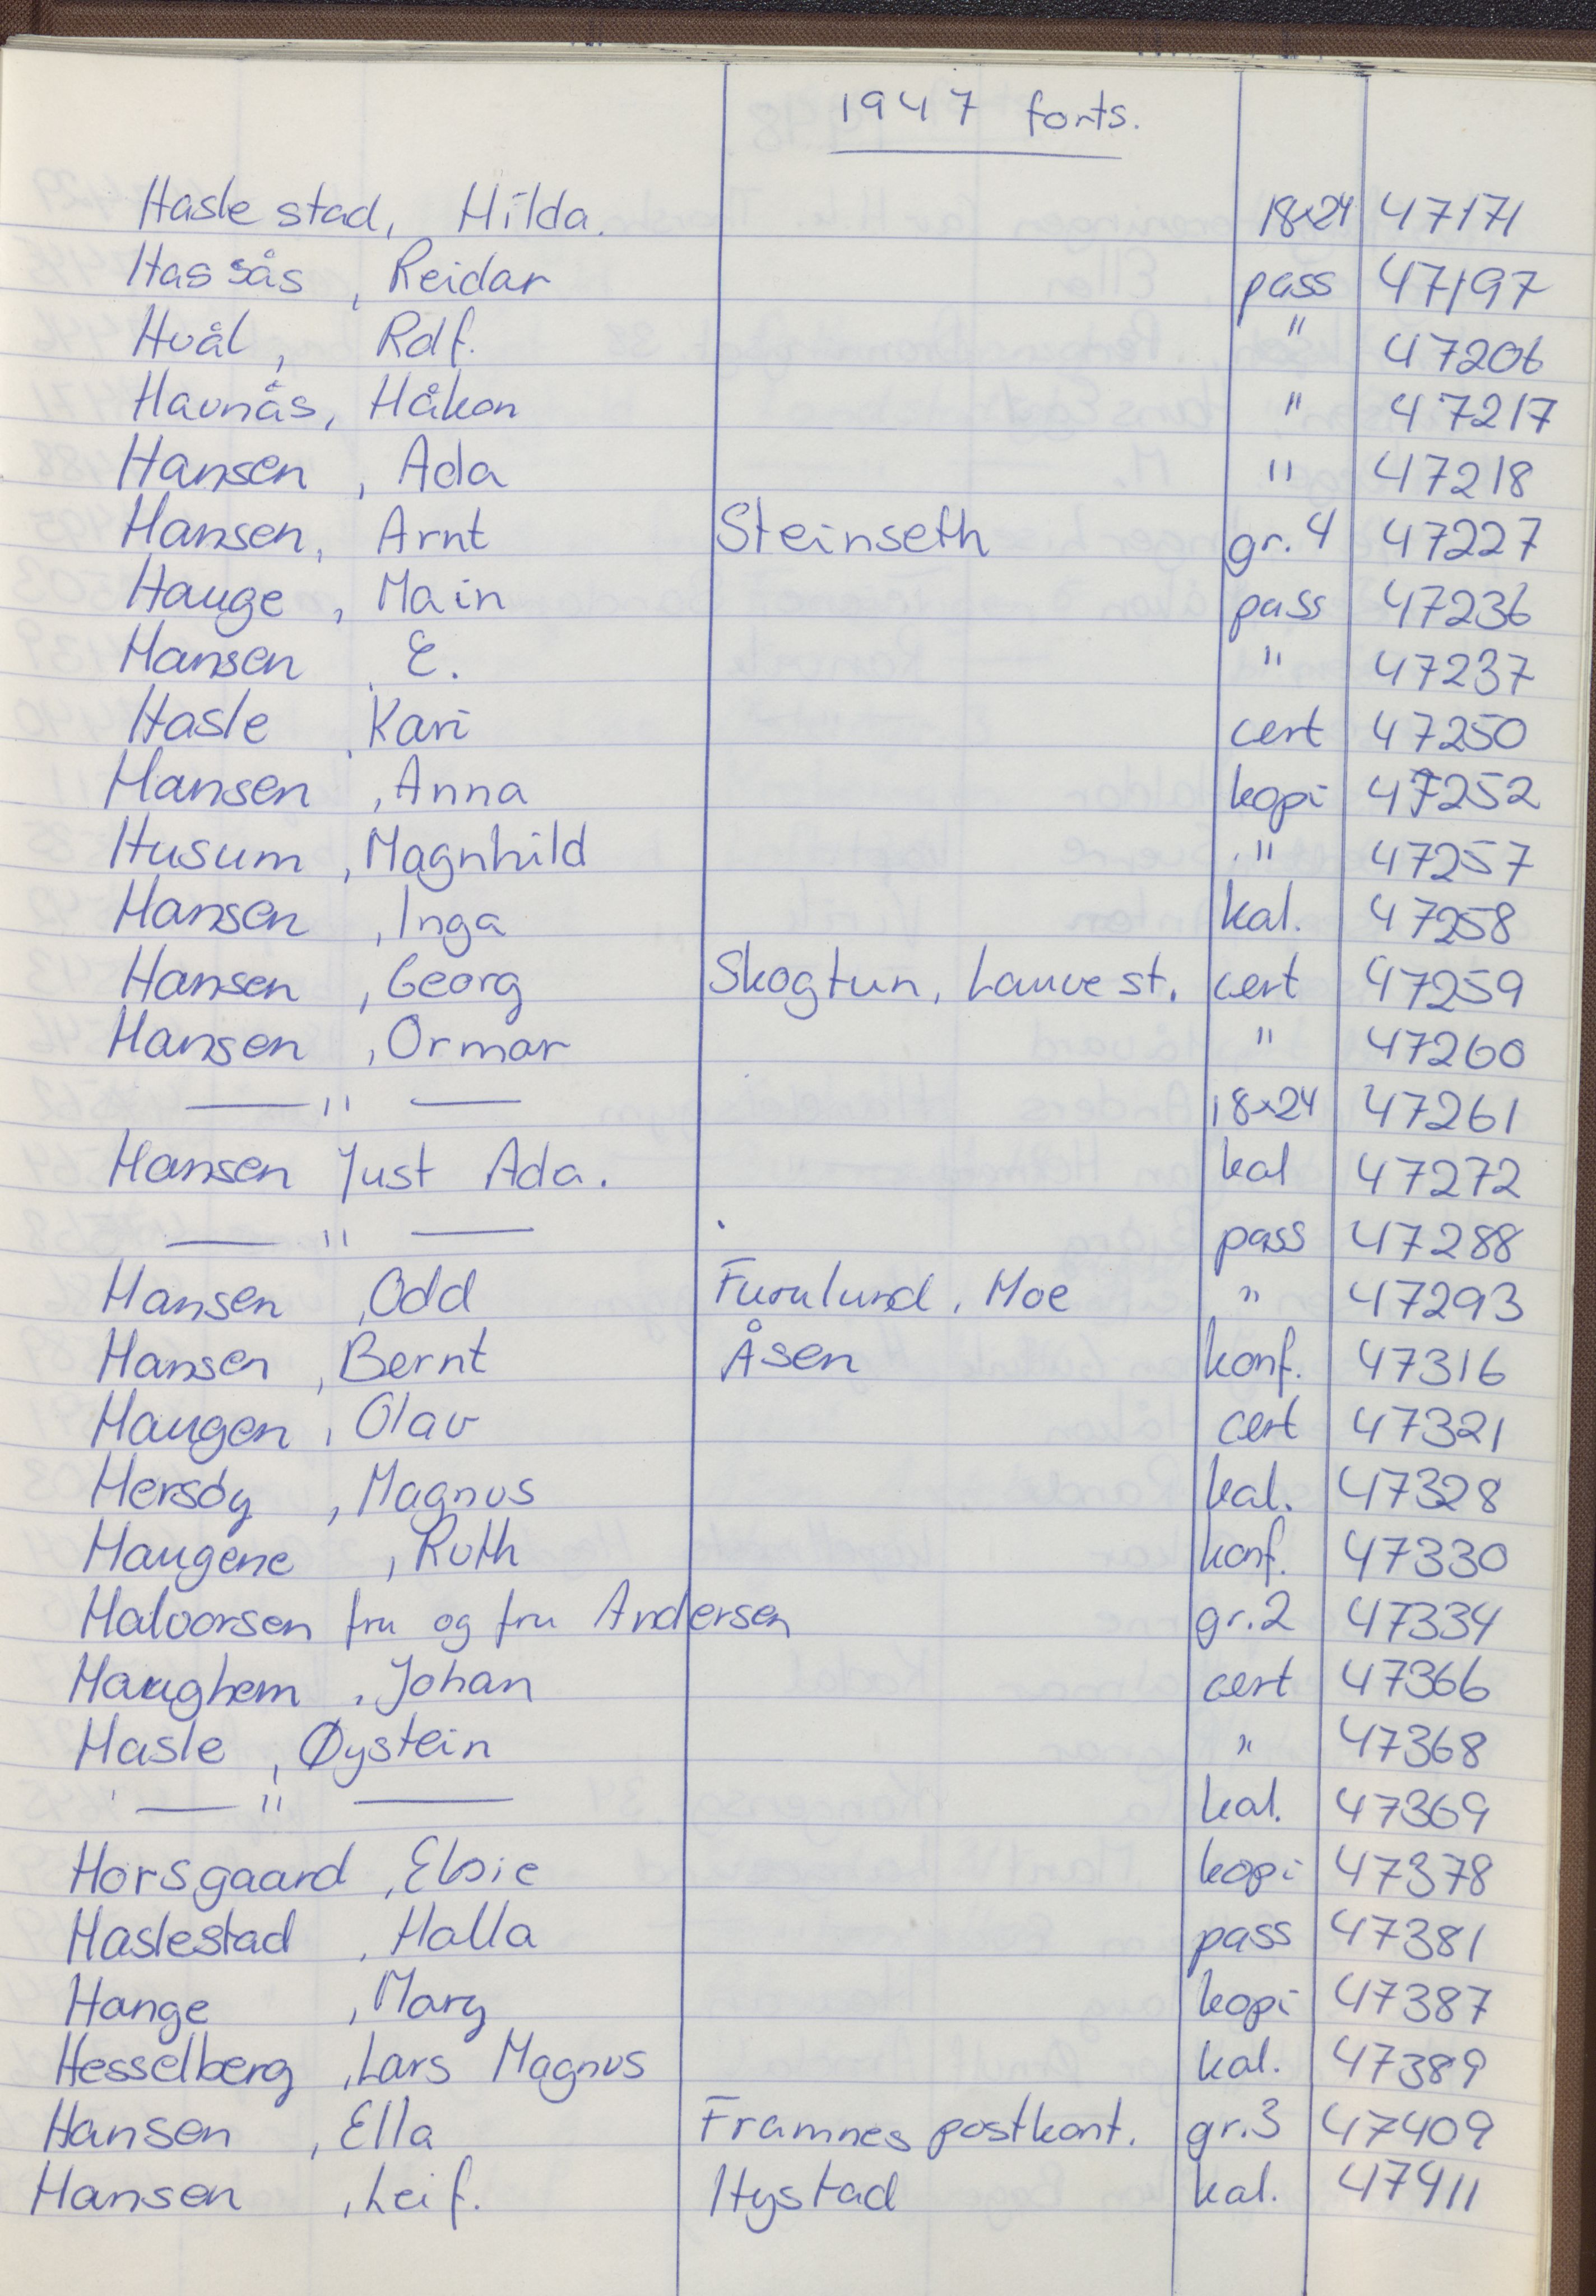 1947 forts.
Haslestad, Hilda. 18x24 47171
Hassås, Reidar pass 47197
Hvål, Rolf. " 47206
Havnås, Håkon " 47217
Hansen, Ada " 47218
Hansen, Arnt Steinseth gr. 4 47227
Hauge, Main pass 47236
Hansen, E. " 47237
Hasle, Kari cert 47250
Hansen, Anna kopi 47252
Husum, Magnhild " 47257
Hansen, Inga kal. 47258
Hansen, Georg Skogtun, Lauve st. cert 47259
Hansen, Ormar " 47260
— " — 18x24 47261
Hansen Just Ada. kal 47272
— " — pass 47288
Hansen, Odd Furulund, Moe " 47293
Hansen, Bernt Åsen konf. 47316
Haugen, Olav cert 47321
Hersöy, Magnus kal. 47328
Haugene, Ruth konf. 47330
Halvorsen fru og fru Andersen gr. 2 47334
Haughem, Johan cert 47366
Hasle, Øystein " 47368
— " — kal. 47369
Horsgaard, Elsie kopi 47378
Haslestad, Halla pass 47381
Hange, Mary kopi 47387
Hesselberg, Lars Magnus kal. 47389
Hansen, Ella Framnes postkont. gr. 3 47409
Hansen, Leif. Hystad kal. 47411